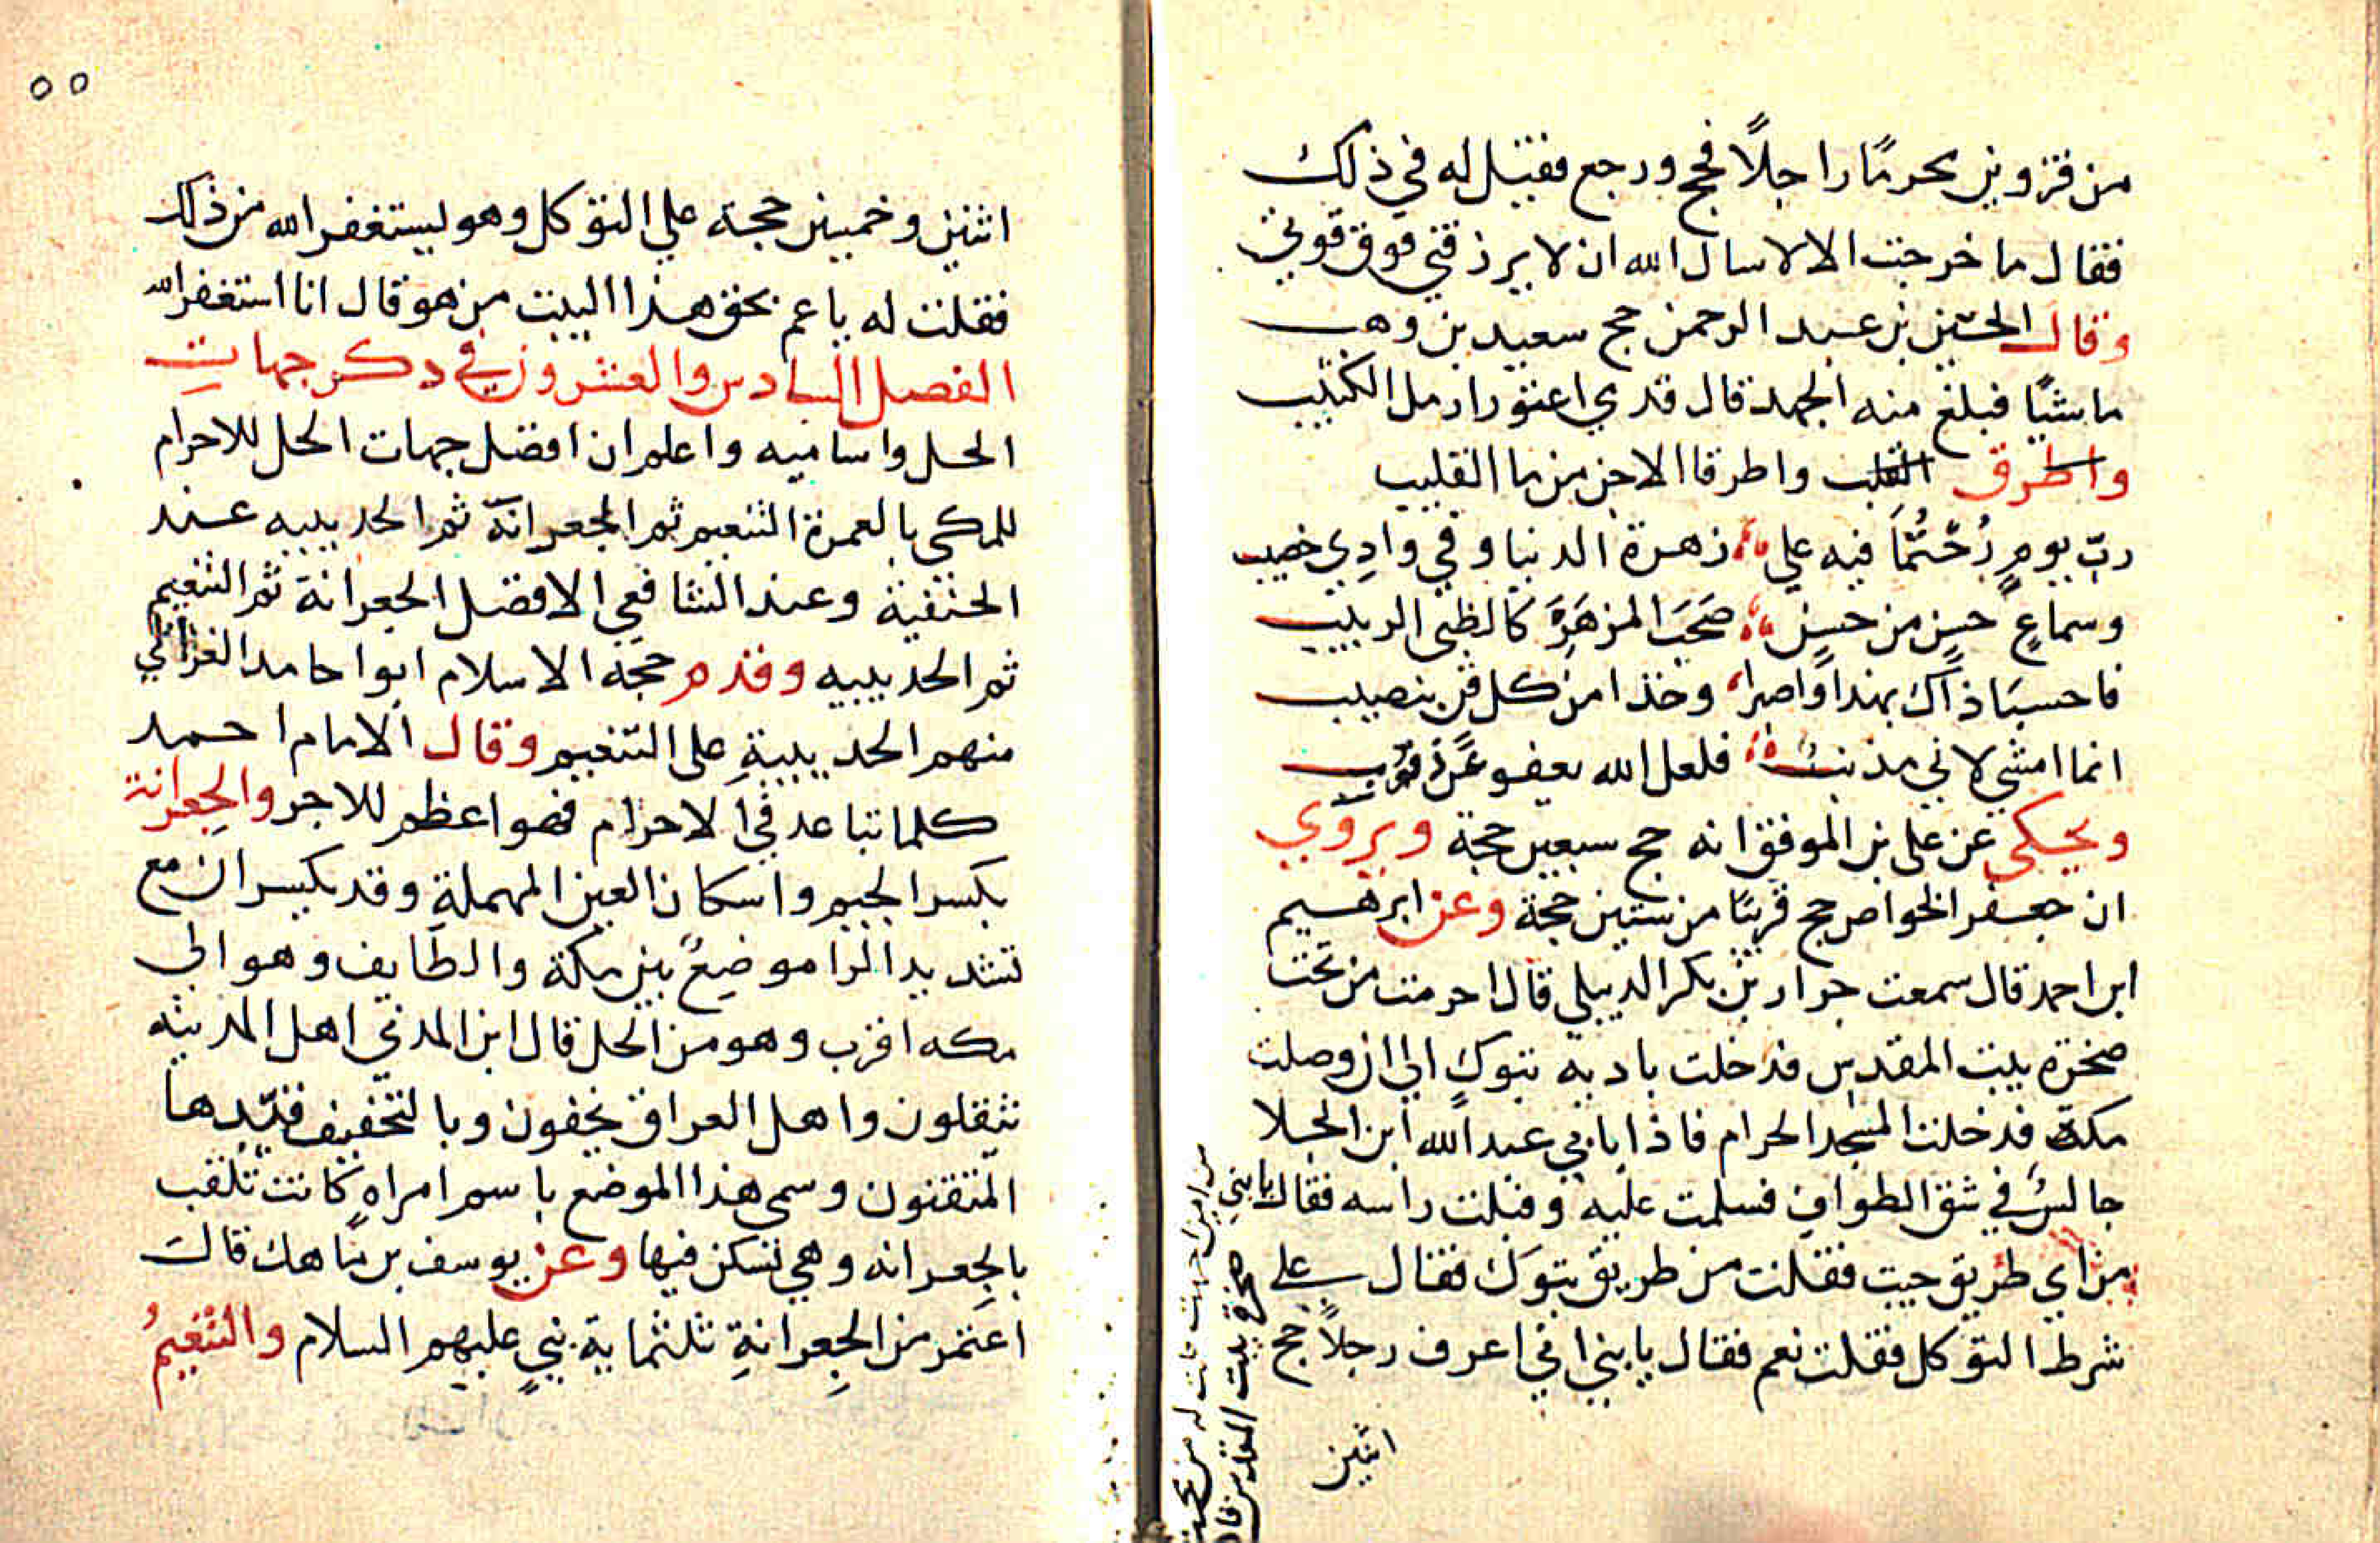 من قزوين محرمًا راجلًا فحج ورجع فقيل له في ذلك
فقال ما خرجت الا لاسال الله ان لا يرزقني فوق قوتي
وقال الحسين بن عبد الرحمن حج سعيد بن وهب
ماشيًا فبلغ منه الجهد قال قدمي اعتورا رمل الكثيب
واطرق القلب واطرقا الاجن من ما القليب
ربّ يومٍ رُحْتُمَا فيه على زهرة الدنيا وفي وادِي خصيب
وسماعٍ حسنٍ من حسنٍ صَخِبَ المزهَرِ كالظبي الربيب
فاحسبَا ذاك بهذا واصبرا وخذا من كل فن بنصيب
انما امشي لاني مذنبٌ فلعل الله يعفو عن ذنوب
ويحكى عن علي بن الموفق انه حج سبعين حجة ويروي
ان جعفر الخواص حج قريبًا من ستين حجة وعن ابرهيم
ابن احمد قال سمعت جرار بن بكر الديبلي قال احرمت من تحت
صخرة بيت المقدس فدخلت بادية تبوكٍ الي ان وصلت
مكة فدخلت المسجد الحرام فاذا بابي عبد الله ابن الجلا
جالسٌ في شق الطوافِ فسلمت عليه وقبلت راسه فقال يا بني
من اي طريق جيت فقلت من طريق تبوك فقال على
شرط التوكل فقلت نعم فقال يا بني اني اعرف رجلًا حج
اثنين
صخرة بيت المقدس
٥٥
اثنين وخمسين حجة علي التوكل وهو يستغفر الله من ذلك
فقلت له يا عم بحق هذا البيت من هو قال انا استغفر الله
الفصل السادس والعشرون في ذكر جهاتِ
الحل واساميه واعلم ان افضل جهات الحل للاحرام
للمكي بالعمرة التنعيم ثم الجعرانة ثم الحديبيه عند
الحنفية وعند الشافعي الافضل الجعرانة ثم التنعيم
ثم الحديبيه وقدم حجة الاسلام ابوا حامد الغزالي
منهم الحديبيةِ على التنعيم وقال الامام احمد
كلما تباعد في الاحرام فهو اعظم للاجر والجِعرانة
بكسر الجيم واسكان العين المهملةِ وقد يكسران مع
تشديد الرا موضِعٌ بين مكة والطايف وهو الي
مكه اقرب وهو من الحل قال ابن المدني اهل المدينه
يثقلون واهل العراق يخفون وبالتخفيف قيّدها
المتقنون وسمي هذا الموضع باسم امراهٍ كانت تلقب
بالجِعرانه وهي تسكن فيها وعن يوسف بن مَاهك قالَ
اعتمر من الجِعرانةِ ثلثماية نبيٍ عليهم السلام والتنعيمُ